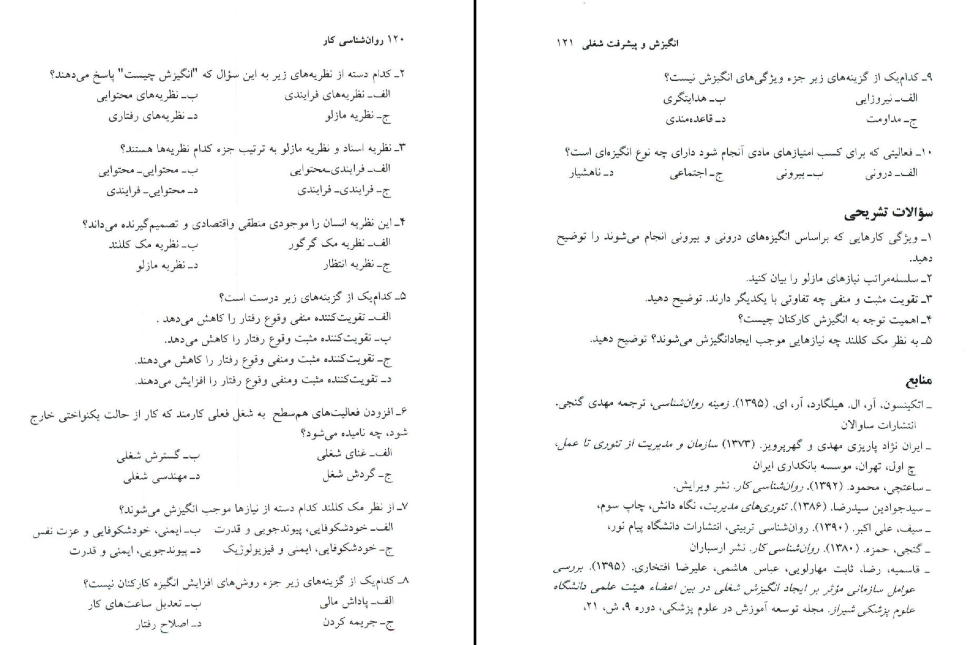 ۱۲۰ روان‌شناسی کار
۲ـ کدام دسته از نظریه‌های زیر به این سؤال که "انگیزش چیست" پاسخ می‌دهند؟
الف‌ـ نظریه‌های فرایندی ب‌ـ نظریه‌های محتوایی
ج‌ـ نظریه مازلو د‌ـ نظریه‌های رفتاری
۳ـ نظریه اسناد و نظریه مازلو به ترتیب جزء کدام نظریه‌ها هستند؟
الف‌ـ فرایندی‌ـ‌محتوایی ب‌ـ محتوایی‌ـ محتوایی
ج‌ـ فرایندی‌ـ فرایندی د‌ـ محتوایی‌ـ فرایندی
۴ـ این نظریه انسان را موجودی منطقی واقتصادی و تصمیم‌گیرنده می‌داند؟
الف‌ـ نظریه مک گرگور ب‌ـ نظریه مک کللند
ج‌ـ نظریه انتظار د‌ـ نظریه مازلو
۵ـ کدام‌یک از گزینه‌های زیر درست است؟
الف‌ـ تقویت‌کننده منفی وقوع رفتار را کاهش می‌دهد .
ب‌ـ تقویت‌کننده مثبت وقوع رفتار را کاهش می‌دهد.
ج‌ـ تقویت‌کننده مثبت ومنفی وقوع رفتار را کاهش می‌دهند.
د‌ـ تقویت‌کننده مثبت ومنفی وقوع رفتار را افزایش می‌دهند.
۶ـ افزودن فعالیت‌های هم‌سطح به شغل فعلی کارمند که کار از حالت یکنواختی خارج
شود، چه نامیده می‌شود؟
الف‌ـ غنای شغلی ب‌ـ گسترش شغلی
ج‌ـ گردش شغل د‌ـ مهندسی شغلی
۷ـ از نظر مک کللند کدام دسته از نیازها موجب انگیزش می‌شوند؟
الف‌ـ خودشکوفایی، پیوندجویی و قدرت ب‌ـ ایمنی، خودشکوفایی و عزت نفس
ج‌ـ خودشکوفایی، ایمنی و فیزیولوژیک د‌ـ پیوندجویی، ایمنی و قدرت
۸ـ کدام‌یک از گزینه‌های زیر جزء روش‌های افزایش انگیزه کارکنان نیست؟
الف‌ـ پاداش مالی ب‌ـ تعدیل ساعت‌های کار
ج‌ـ جریمه کردن د‌ـ اصلاح رفتار
انگیزش و پیشرفت شغلی ۱۲۱
۹ـ کدام‌یک از گزینه‌های زیر جزء ویژگی‌های انگیزش نیست؟
الف‌ـ نیروزایی ب‌ـ هدایتگری
ج‌ـ مداومت د‌ـ قاعده‌مندی
۱۰ـ فعالیتی که برای کسب امتیازهای مادی آنجام شود دارای چه نوع انگیزه‌ای است؟
الف‌ـ درونی ب‌ـ بیرونی ج‌ـ اجتماعی د‌ـ ناهشیار
سؤالات تشریحی
۱ـ ویژگی کارهایی که براساس انگیزه‌های درونی و بیرونی انجام می‌شوند را توضیح
دهید.
۲ـ سلسله‌مراتب نیازهای مازلو را بیان کنید.
۳ـ تقویت مثبت و منفی چه تفاوتی با یکدیگر دارند. توضیح دهید.
۴ـ اهمیت توجه به انگیزش کارکنان چیست؟
۵ـ به نظر مک کللند چه نیازهایی موجب ایجادانگیزش می‌شوند؟ توضیح دهید.
منابع
ـ اتکینسون، آر، ال. هیلگارد، آر، ای. (۱۳۹۵). زمینه روان‌شناسی، ترجمه مهدی گنجی.
انتشارات ساوالان
ـ ایران نژاد پاریزی مهدی و گهرپرویز. (۱۳۷۳) سازمان و مدیریت از تئوری تا عمل،
چ اول، تهران، موسسه بانکداری ایران
ـ ساعتچی، محمود. (۱۳۹۲). روان‌شناسی کار. نشر ویرایش.
ـ سیدجوادین سیدرضا. (۱۳۸۶). تئوری‌های مدیریت، نگاه دانش، چاپ سوم،
ـ سیف، علی اکبر. (۱۳۹۰). روان‌شناسی تربیتی، انتشارات دانشگاه پیام نور،
ـ گنجی، حمزه. (۱۳۸۰). روان‌شناسی کار. نشر ارسباران
ـ قاسمیه، رضا، ثابت مهارلویی، عباس هاشمی، علیرضا افتخاری. (۱۳۹۵). بررسی
عوامل سازمانی مؤثر بر ایجاد انگیزش شغلی در بین اعضاء هیئت علمی دانشگاه
علوم پزشکی شیراز. مجله توسعه آموزش در علوم پزشکی، دوره ۹، ش، ۲۱،